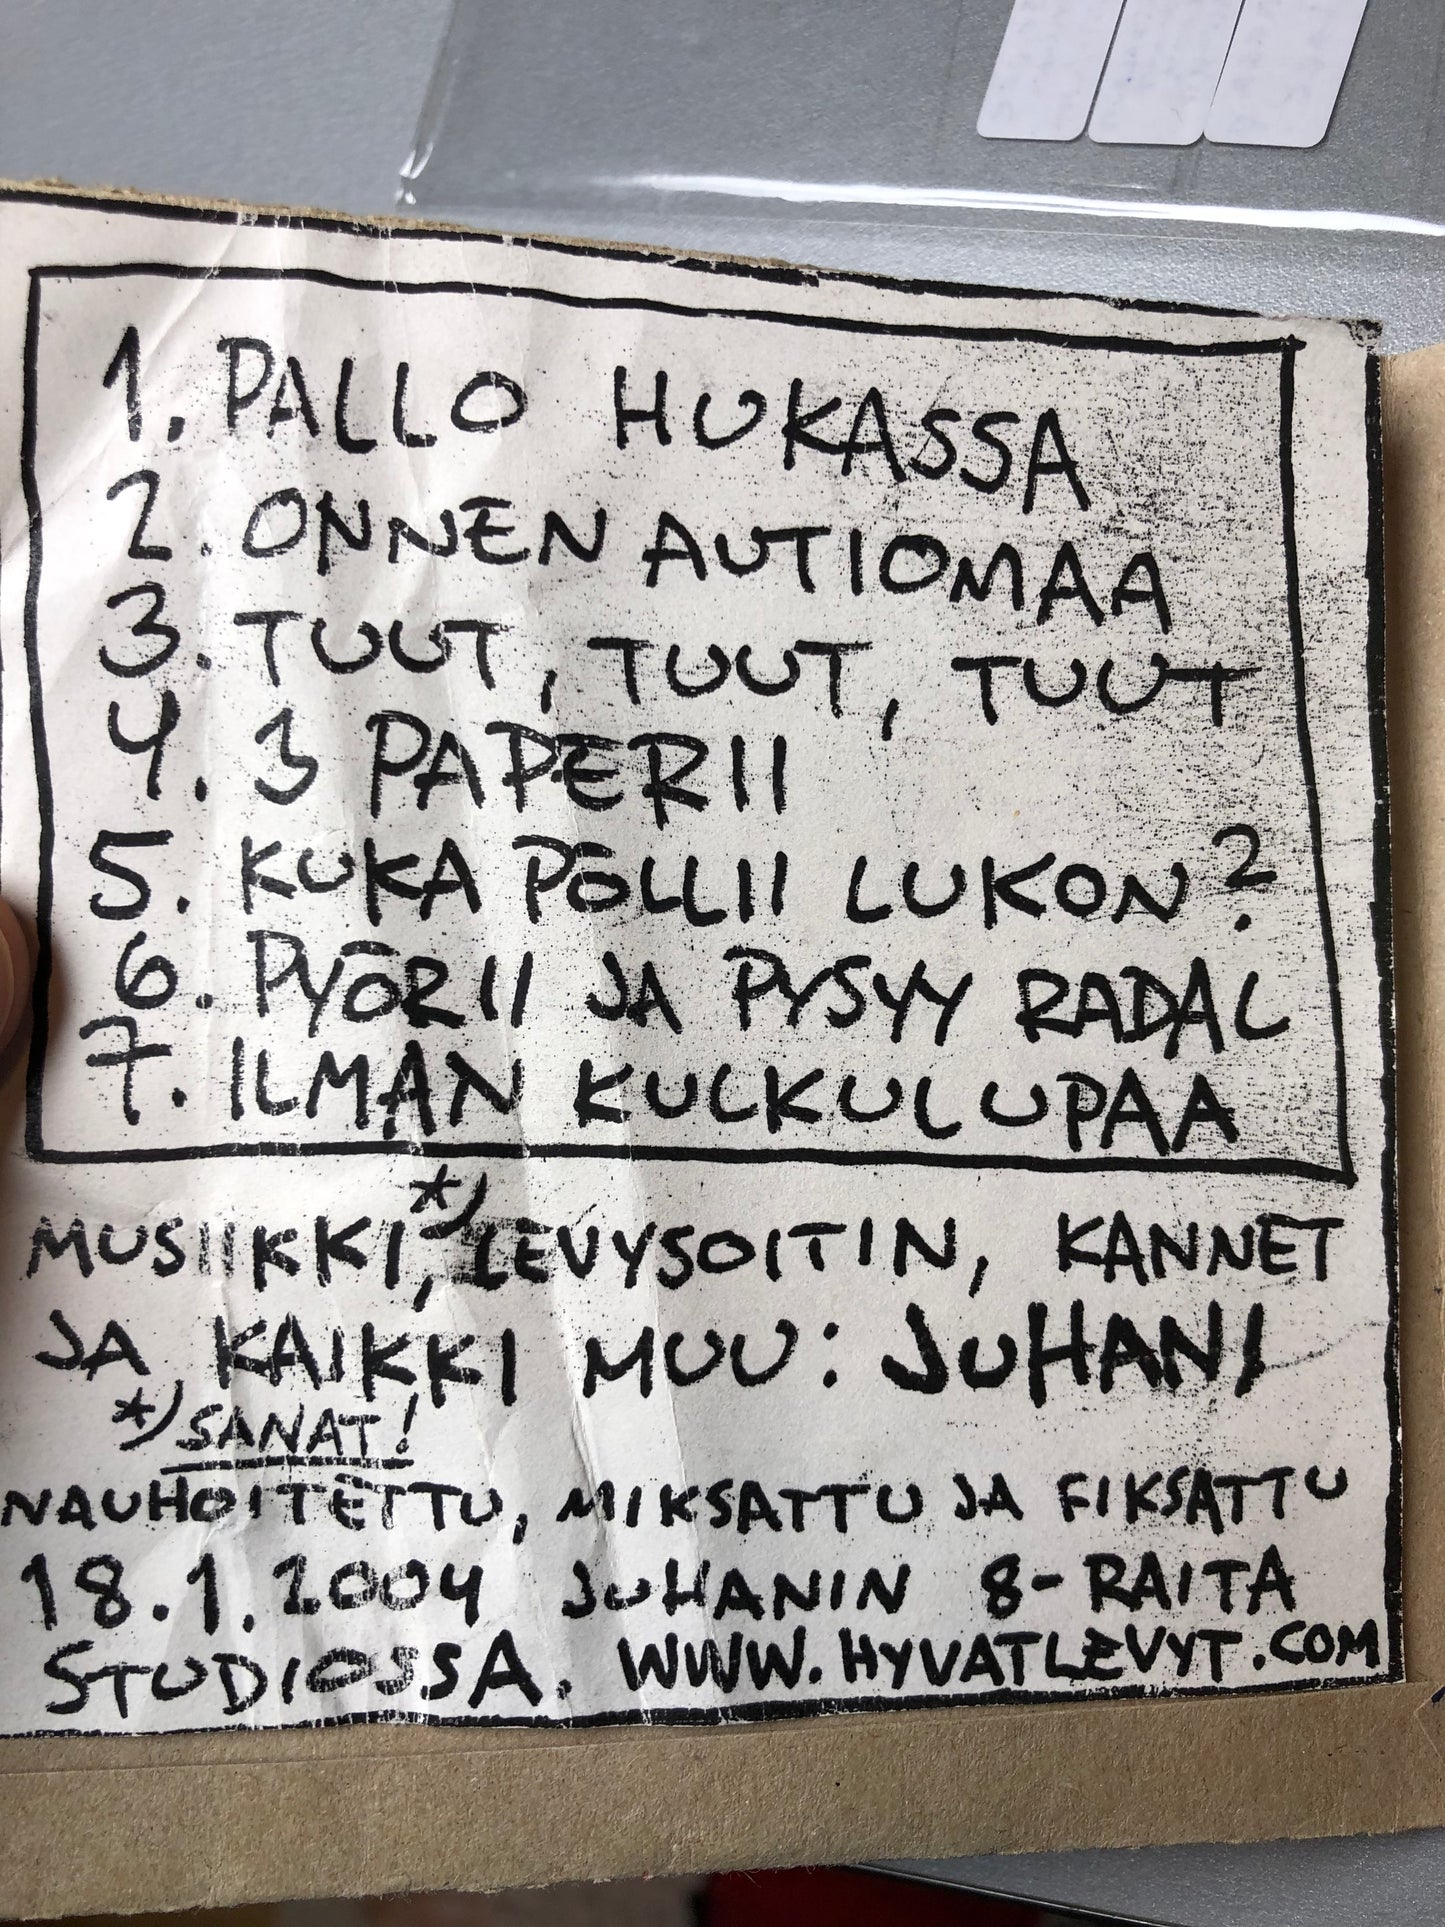 1. PALLO HUKASSA
2. ONNEN AUTIOMAA
3. TUUT, TUUT, TUUT
4. 3 PAPERII
5. KUKA PÖLLII LUKON?
6. PYÖRII JA PYSYY RADAL
7. ILMAN KULKULUPAA
MUSIIKKI,*) LEVYSOITIN, KANNET
JA KAIKKI MUU: JUHANI
*) SANAT!
NAUHOITETTU, MIKSATTU JA FIKSATTU
18.1.2004 JUHANIN 8-RAITA
STUDIOSSA. WWW.HYVATLEVYT.COM